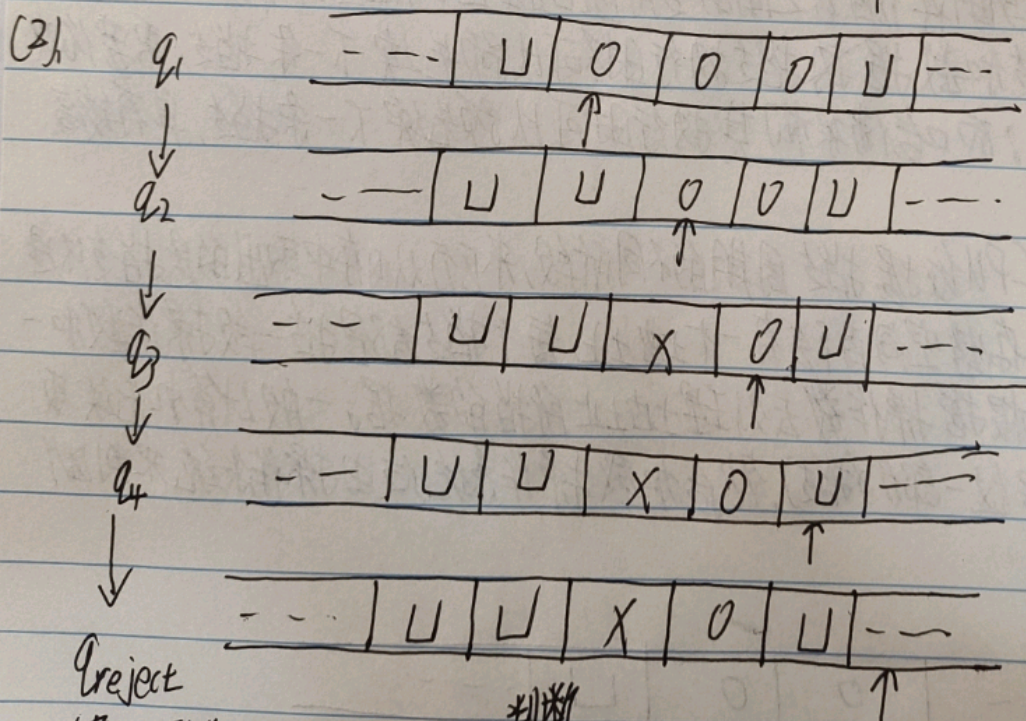 (3), q1 --- ⊔ 0 0 0 ⊔ ---
q2 --- ⊔ ⊔ 0 0 ⊔ ---
q3 --- ⊔ ⊔ x 0 ⊔ ---
q4 --- ⊔ ⊔ x 0 ⊔ ---
--- ⊔ ⊔ x 0 ⊔ ---
qreject 判断